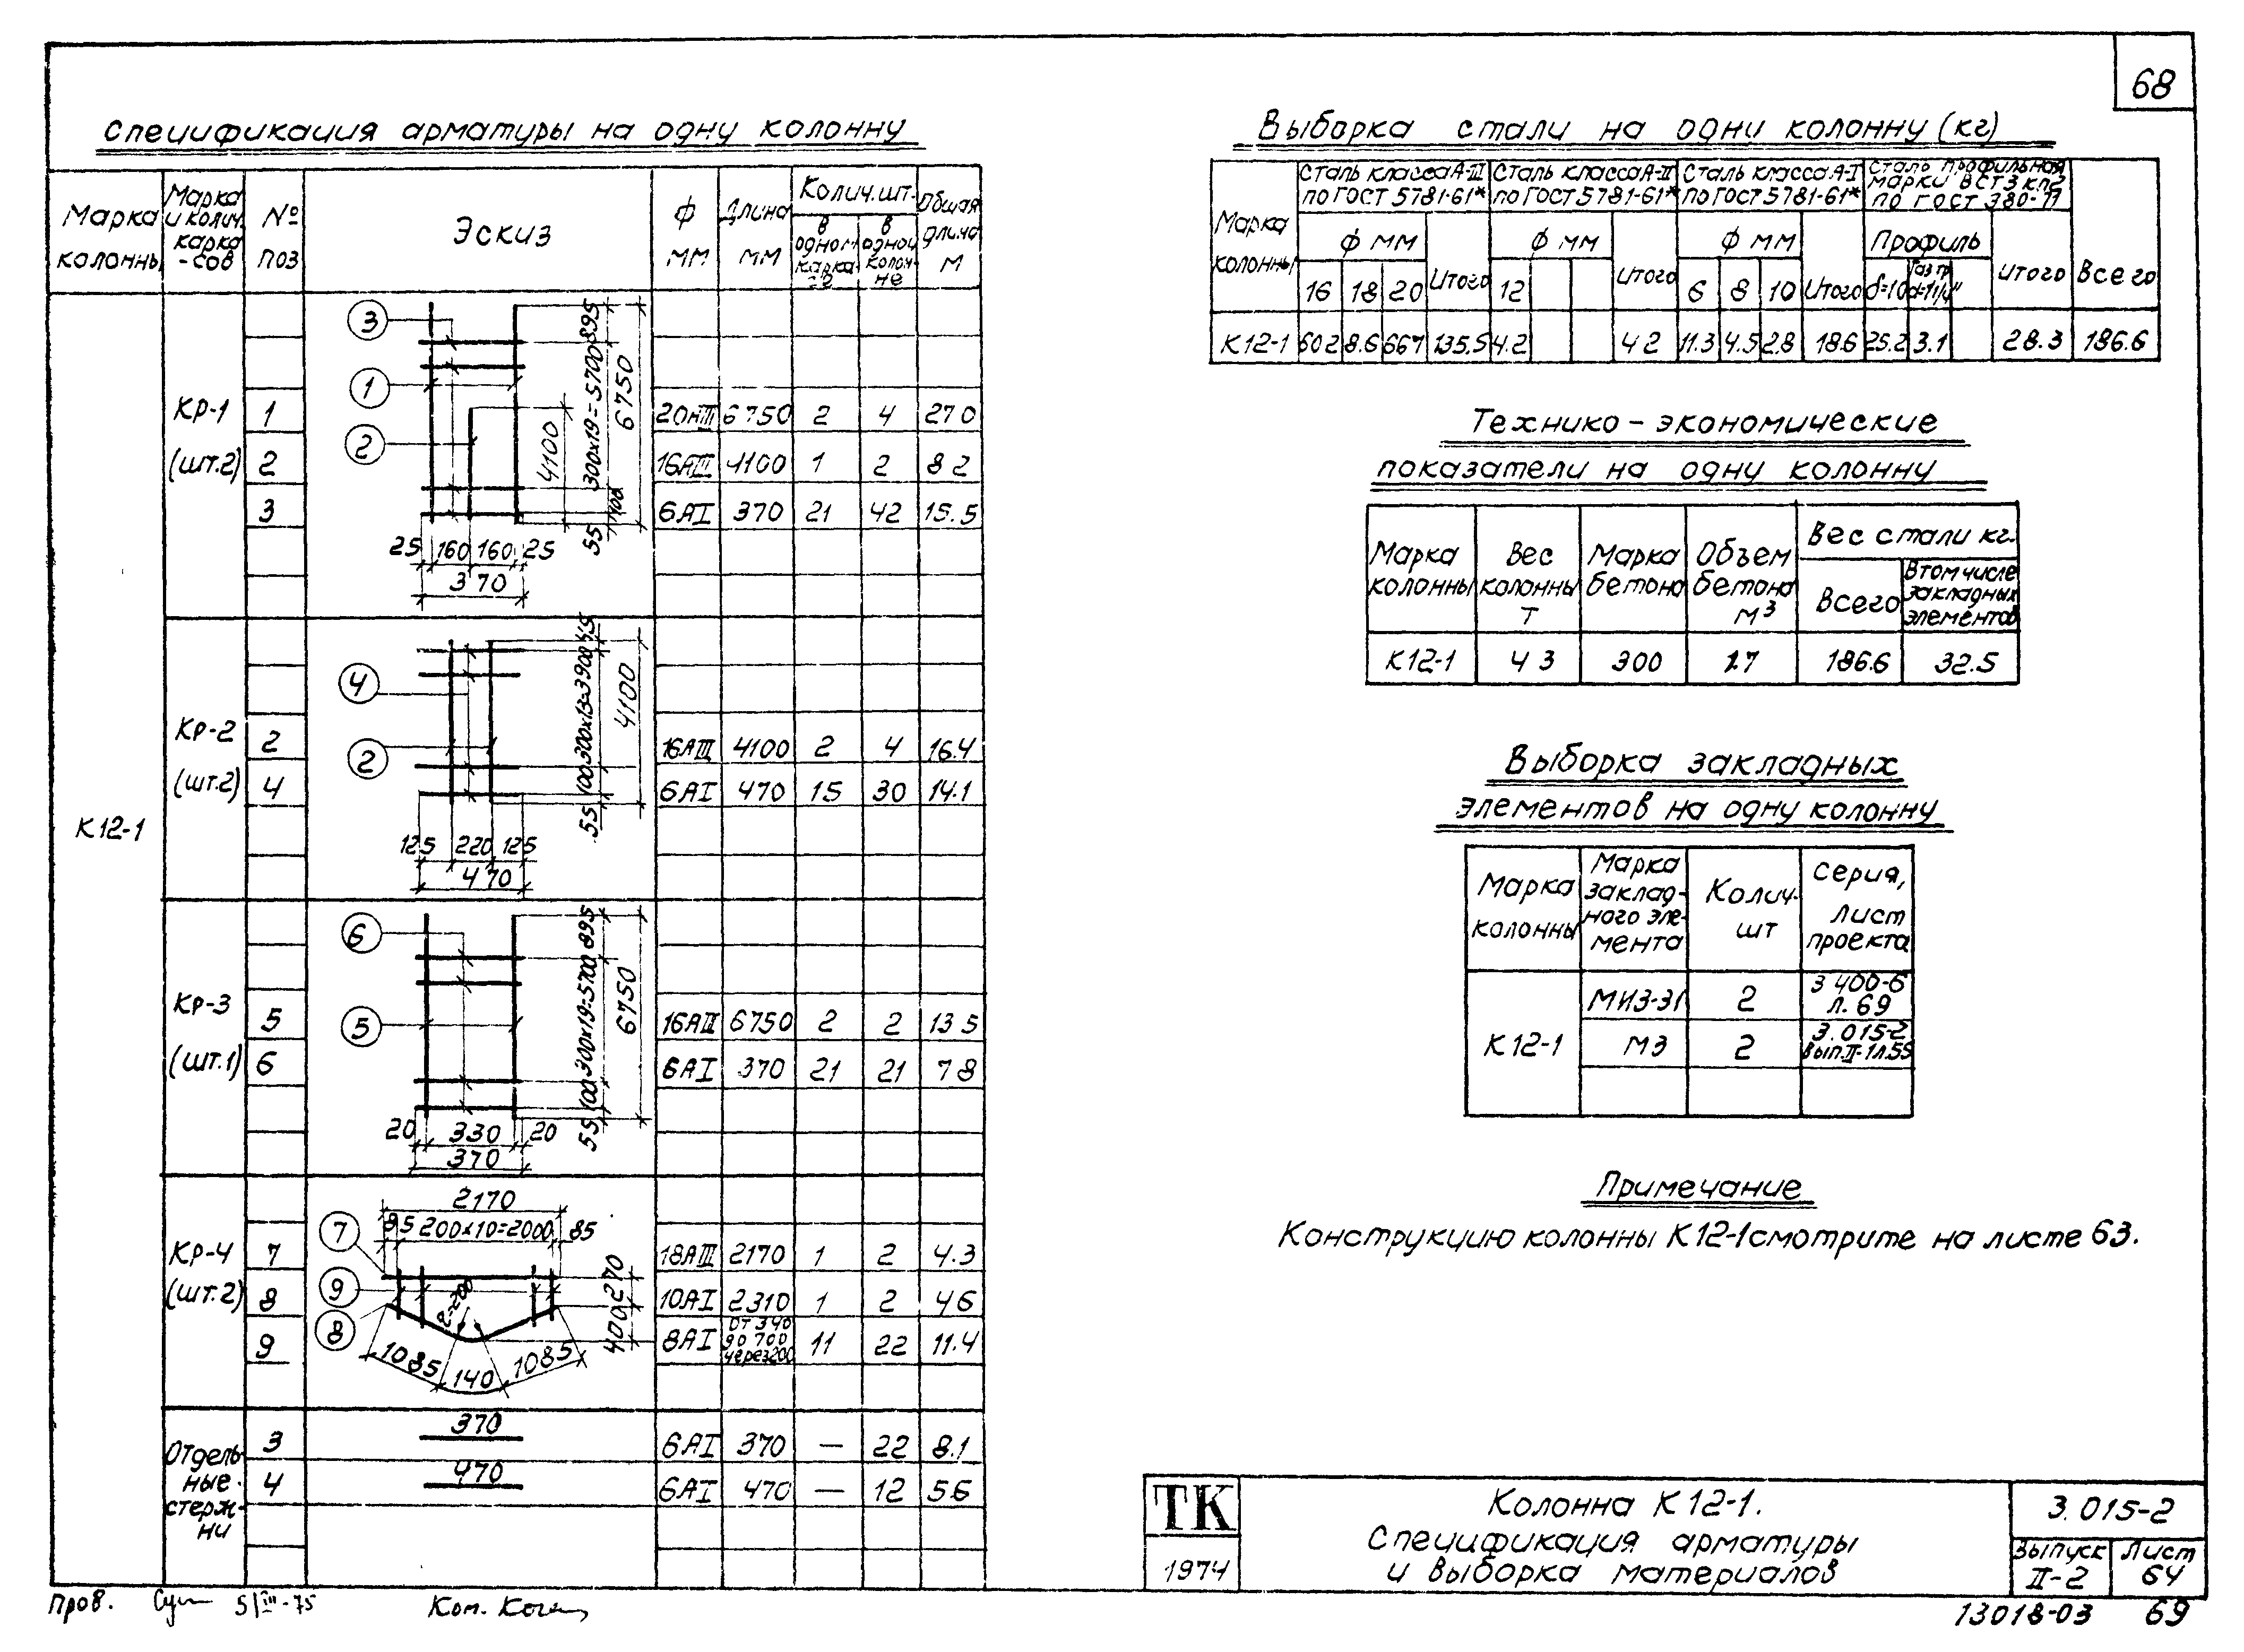 68
Спецификация арматуры на одну колонну
Марка колонны
Марка и колич. карка-сов
№ поз
Эскиз
ф мм
Длина мм
Колич. шт.
в одном карка-се
в одной колон-не
Общая длина м
К12-1
КР-1 (шт.2)
3
1
2
895
300х19=5700
6750
4100
100
55
25 160 160 25
370
1 20АIII 6750 2 4 27 0
2 16АIII 4100 1 2 8 2
3 6АI 370 21 42 15.5
КР-2 (шт.2)
4
2
45
300х13=3900
4100
100
55
125 220 125
470
2 16АIII 4100 2 4 16.4
4 6АI 470 15 30 14.1
КР-3 (шт.1)
6
5
895
300х19=5700
6750
100
55
20 330 20
370
5 16АIII 6750 2 2 13 5
6 6АI 370 21 21 7 8
КР-4 (шт.2)
2170
85 200х10=2000 85
7
9
8
270
400
R=200
1085 140 1085
7 18АIII 2170 1 2 4.3
8 10АI 2310 1 2 4 6
9 8АI от 340 до 700 через 200 11 22 11.4
Отдель-ные стерж-ни
3 370 6АI 370 — 22 8.1
4 470 6АI 470 — 12 5.6
Выборка стали на одни колонну (кг)
Марка колонны
Сталь класса А-III по ГОСТ 5781-61*
Сталь класса А-II по ГОСТ 5781-61*
Сталь класса А-I по ГОСТ 5781-61*
Сталь профильная марки ВСТ3кп2 по ГОСТ 380-71
Всего
ф мм Итого
ф мм Итого
ф мм Итого
Профиль Итого
16 18 20 12 6 8 10 δ=10 Газ тр d=1 1/4"
К12-1 60 2 8.6 66 7 135.5 4.2 4 2 11.3 4.5 2.8 18.6 25.2 3.1 28.3 186.6
Технико-экономические
показатели на одну колонну
Марка колонны
Вес колонны т
Марка бетона
Объем бетона м³
Вес стали кг.
Всего
В том числе закладных элементов
К12-1 4 3 300 1.7 186.6 32.5
Выборка закладных
элементов на одну колонну
Марка колонны
Марка заклад-ного эле-мента
Колич. шт
Серия, лист проекта
К12-1
МИ3-31 2 3 400-6 л. 69
М3 2 3.015-2 Вып.II-1 л.55
Примечание
Конструкцию колонны К12-1 смотрите на листе 63.
ТК
1974
Колонна К12-1.
Спецификация арматуры
и выборка материалов
3.015-2
Выпуск II-2
Лист 64
Пров.
5/III-75
Коп.
13018-03 69